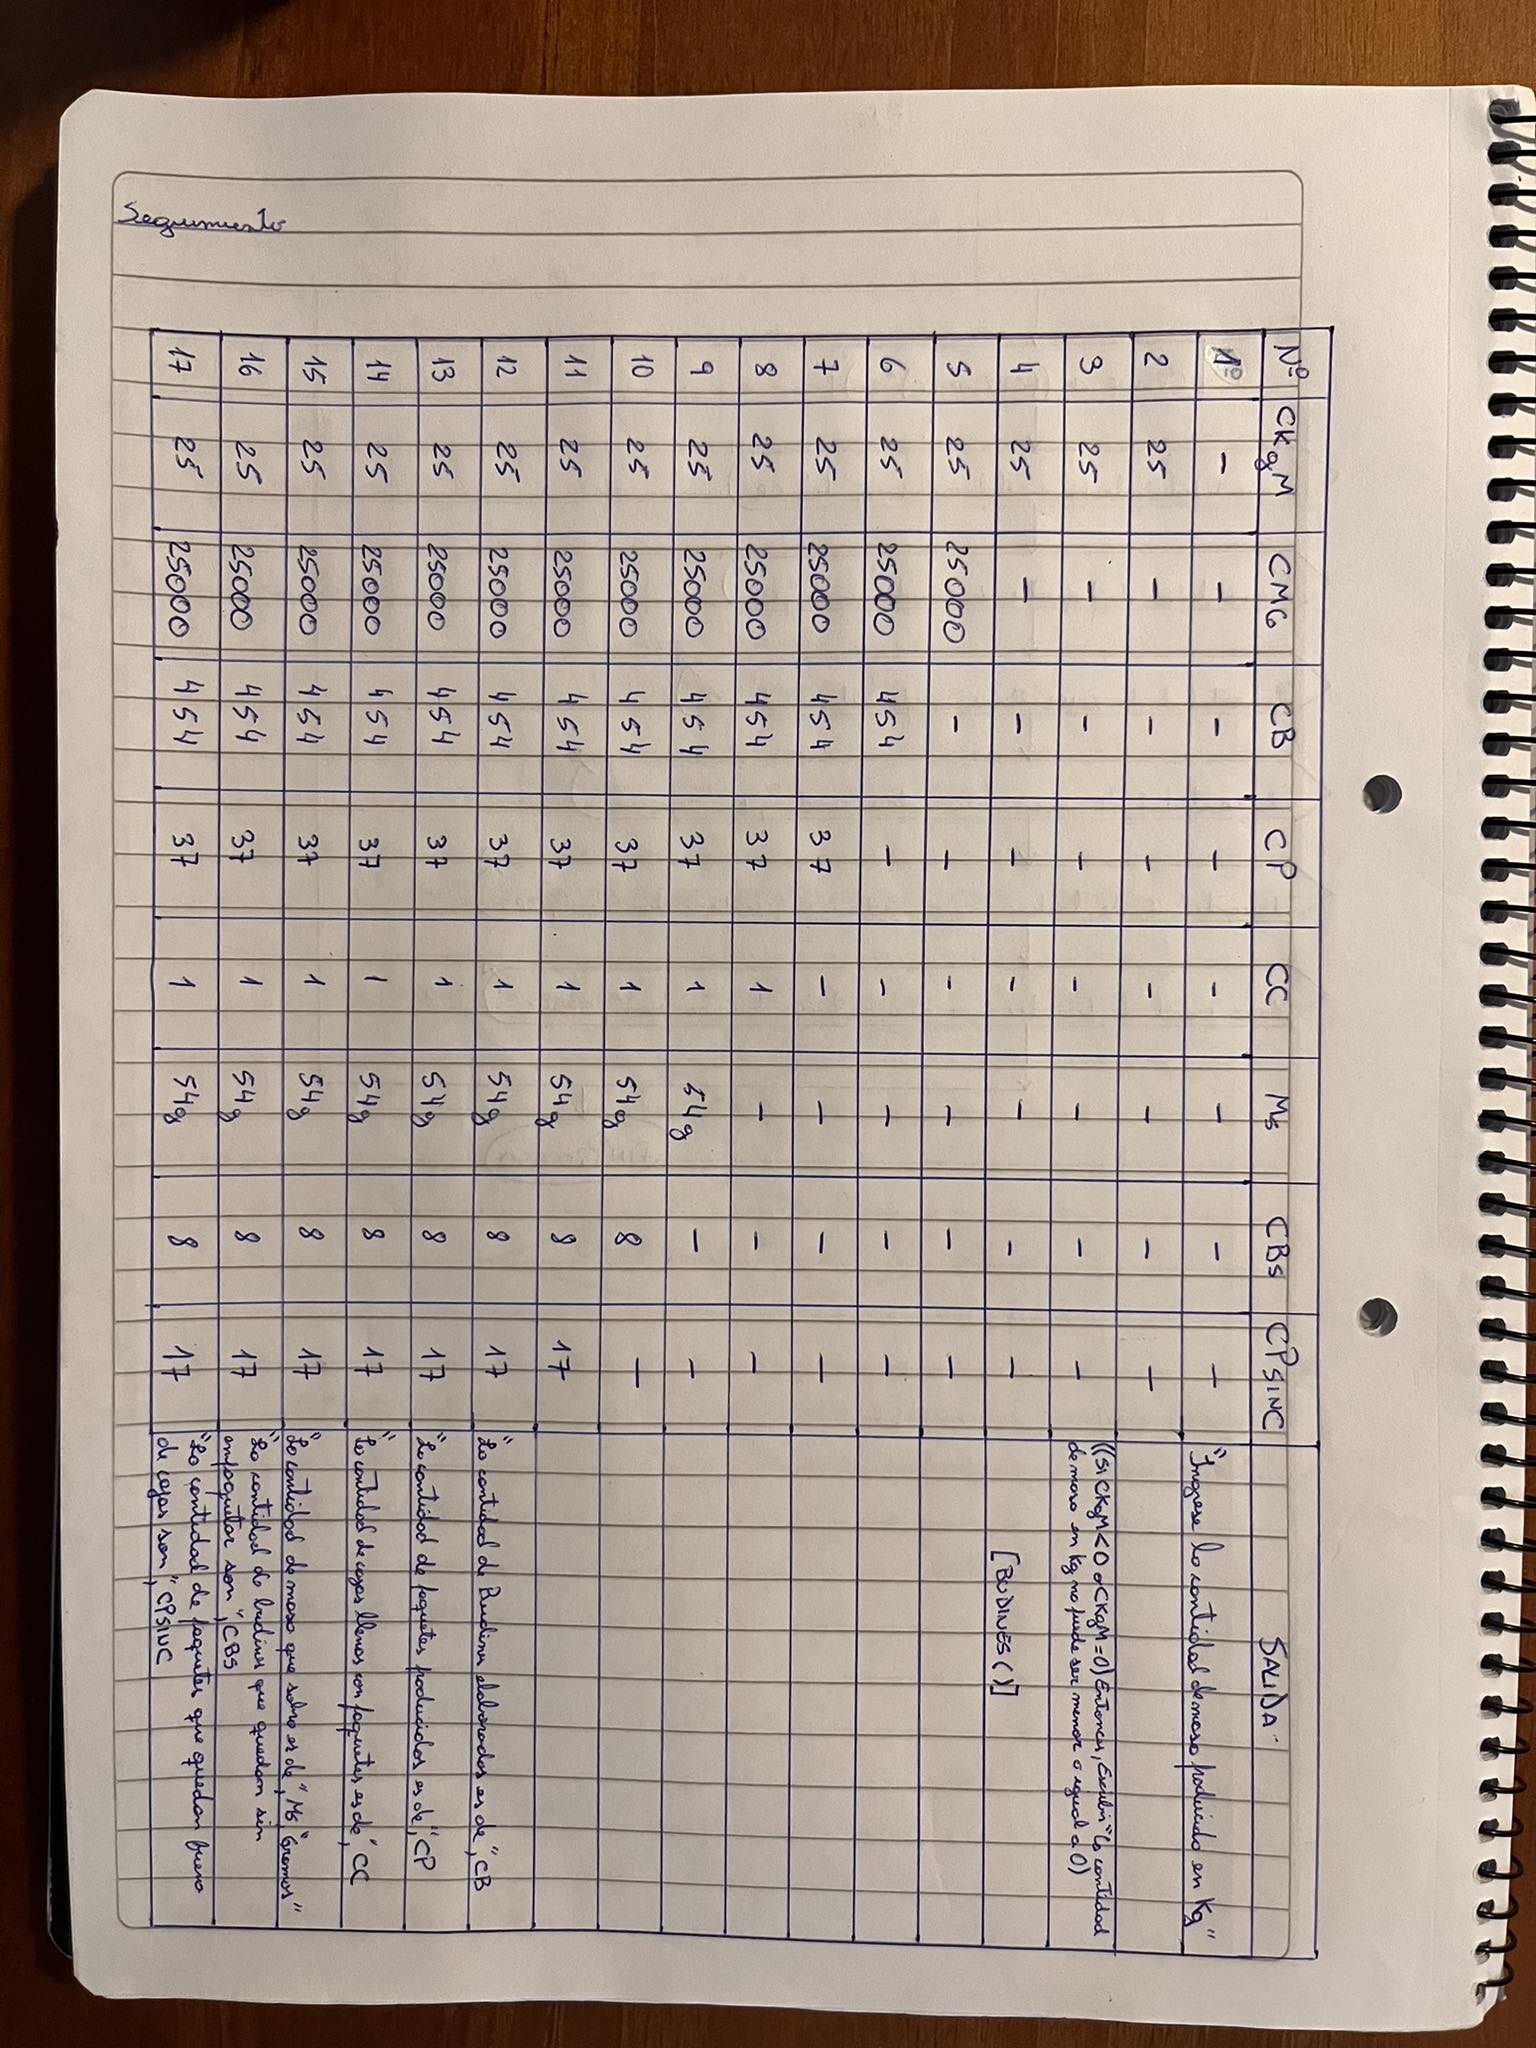 Seguimiento
Nº CKgM CMG CB CP CC Ms CBs CPSINC SALIDA
1º - - - - - - - - "Ingrese la cantidad de masa producida en Kg"
2 25 - - - - - - -
3 25 - - - - - - - ((Si CKgM<0 o CKgM=0) Entonces, Escribir "la cantidad
de masa en kg no puede ser menor o igual a 0)
4 25 - - - - - - - [BUDINES()]
5 25 25000 - - - - - -
6 25 25000 454 - - - - -
7 25 25000 454 37 - - - -
8 25 25000 454 37 1 - - -
9 25 25000 454 37 1 54g - -
10 25 25000 454 37 1 54g 8 -
11 25 25000 454 37 1 54g 8 17
12 25 25000 454 37 1 54g 8 17 "La cantidad de Budines elaborados es de", CB
13 25 25000 454 37 1 54g 8 17 "La cantidad de paquetes producidos es de", CP
14 25 25000 454 37 1 54g 8 17 "La cantidad de cajas llenas con paquetes es de", CC
15 25 25000 454 37 1 54g 8 17 "La cantidad de masa que sobra es de", Ms "Gramos"
16 25 25000 454 37 1 54g 8 17 "La cantidad de budines que quedan sin
empaquetar son", CBs
17 25 25000 454 37 1 54g 8 17 "La cantidad de paquetes que quedan fuera
de cajas son", CPSINC